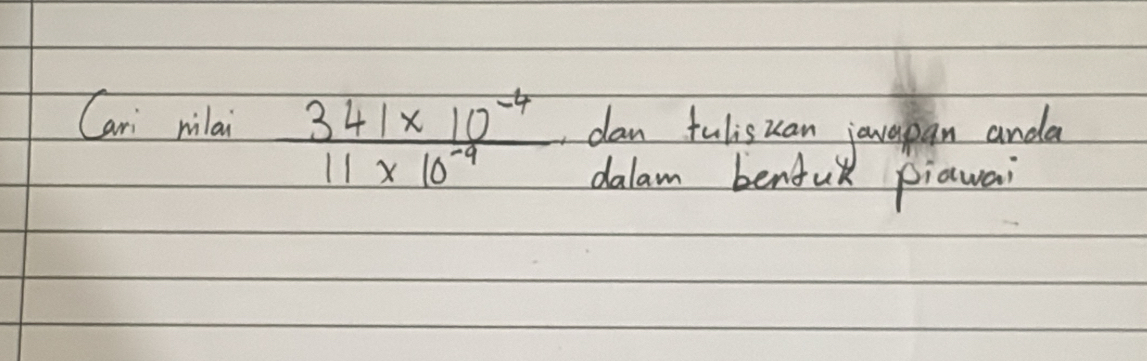 Cari nilai 341 × 10⁻⁴ / 11 × 10⁻⁹, dan tuliskan jawapan anda
dalam bentuk piawai